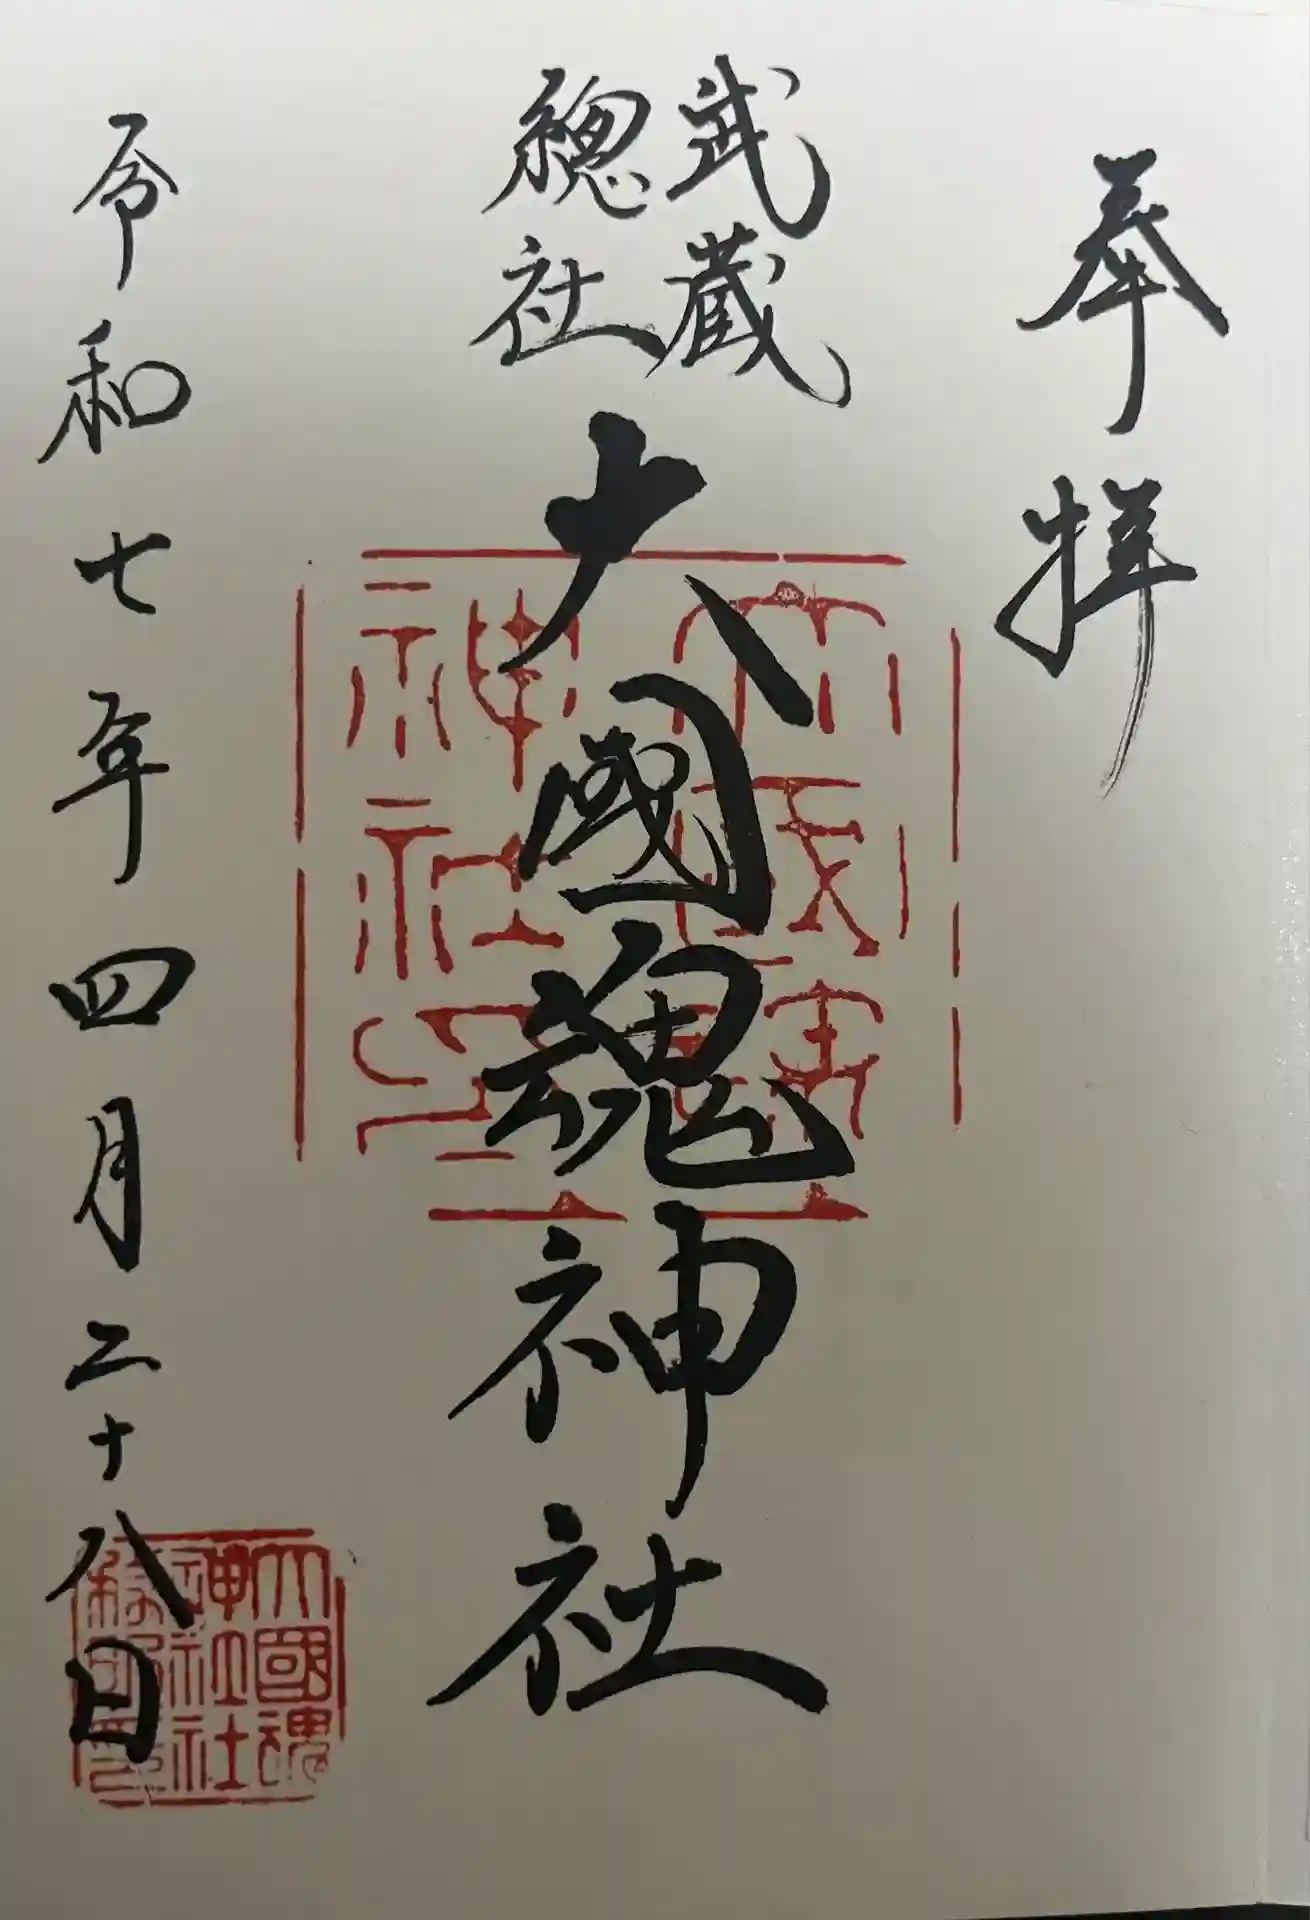 奉拝
武蔵
總社
大國魂神社
令和七年四月二十八日
大國魂
神社